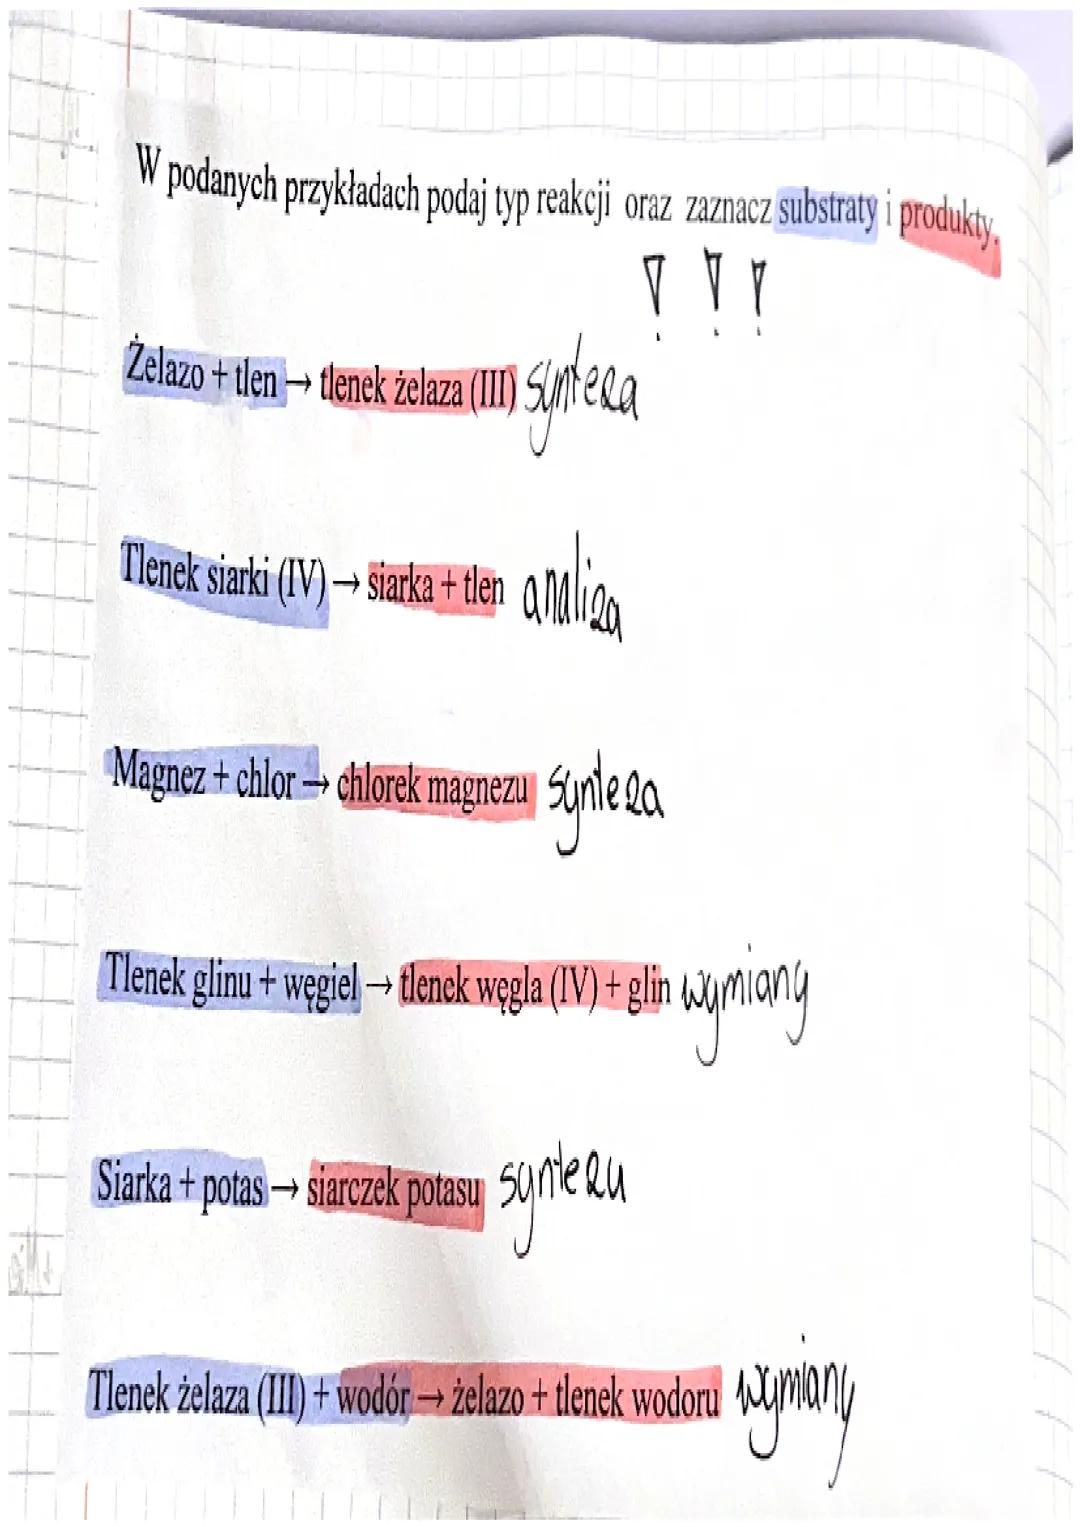 W podanych przykładach podaj typ reakcji oraz zaznacz substraty i produkty.
! ! !
Żelazo + tlen → tlenek żelaza (III) synteza
Tlenek siarki (IV) → siarka + tlen analiza
Magnez + chlor → chlorek magnezu synteza
Tlenek glinu + węgiel → tlenek węgla (IV) + glin wymiany
Siarka + potas → siarczek potasu synteza
Tlenek żelaza (III) + wodór → żelazo + tlenek wodoru wymiany